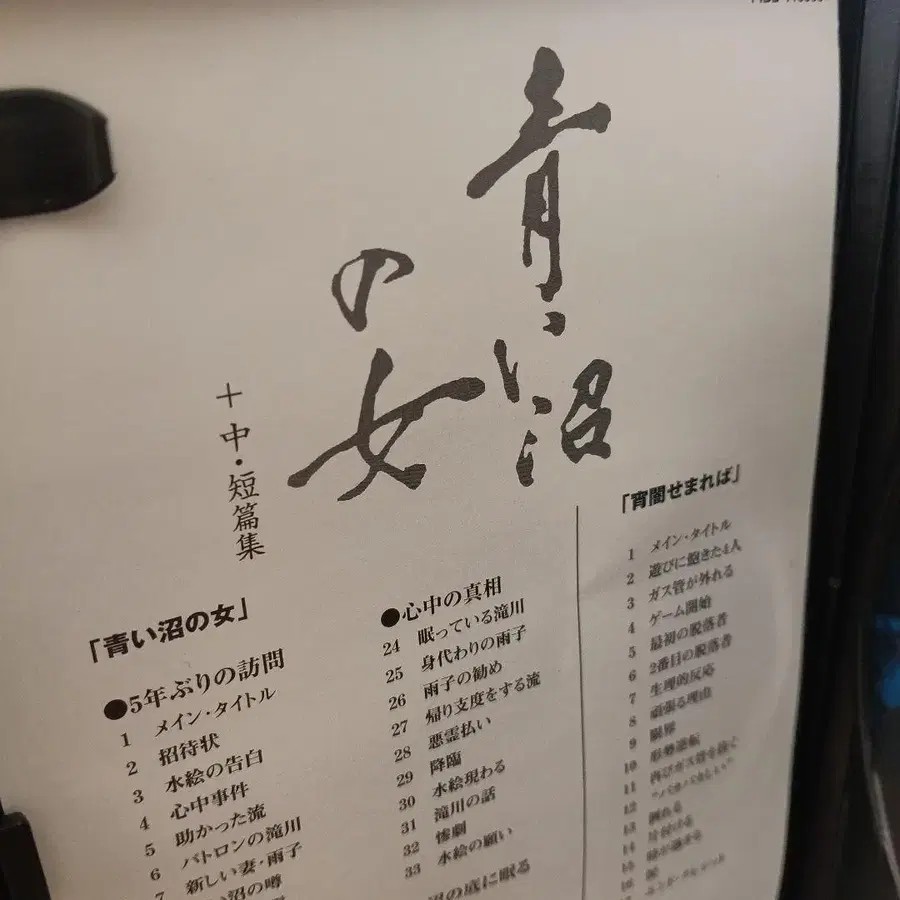 青い沼
の女
＋中・短篇集
「青い沼の女」
●5年ぶりの訪問
1 メイン・タイトル
2 招待状
3 水絵の告白
4 心中事件
5 助かった流
6 パトロンの滝川
7 新しい妻・雨子
沼の噂
●心中の真相
24 眠っている滝川
25 身代わりの雨子
26 雨子の勧め
27 帰り支度をする流
28 悪霊払い
29 降臨
30 水絵現わる
31 滝川の話
32 惨劇
33 水絵の願い
の底に眠る
「宵闇せまれば」
1 メイン・タイトル
2 遊びに飽きた4人
3 ガス管が外れる
4 ゲーム開始
5 最初の脱落者
6 2番目の脱落者
7 生理的反応
8 頑張る理由
9 限界
10 形勢逆転
11 再びガス管を抜く
12
13 倒れる
14 片付ける
15
16